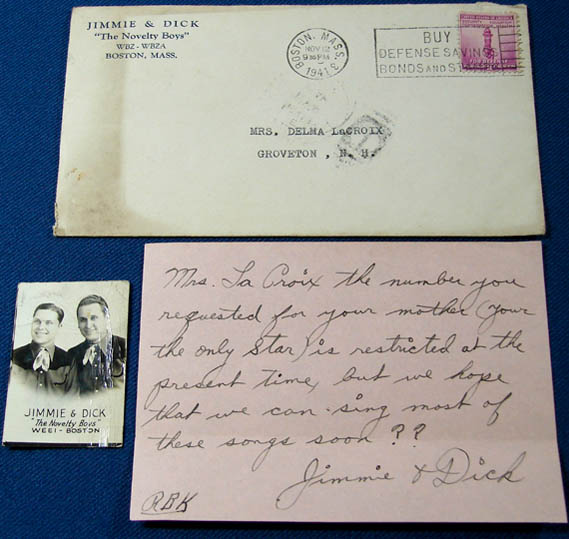 JIMMIE & DICK
"The Novelty Boys"
WBZ - WBZA
BOSTON, MASS.
BOSTON, MASS.
NOV 12
9 30 PM
1941
BUY
DEFENSE SAVINGS
BONDS AND STAMPS
MRS. DELMA LaCROIX
GROVETON , N. H.
JIMMIE & DICK
"The Novelty Boys"
WEEI - BOSTON
Mrs. La Croix the number you
requested for your mother (your
the only Star) is restricted at the
present time, but we hope
that we can sing most of
these songs soon ??
Jimmie & Dick
RBK